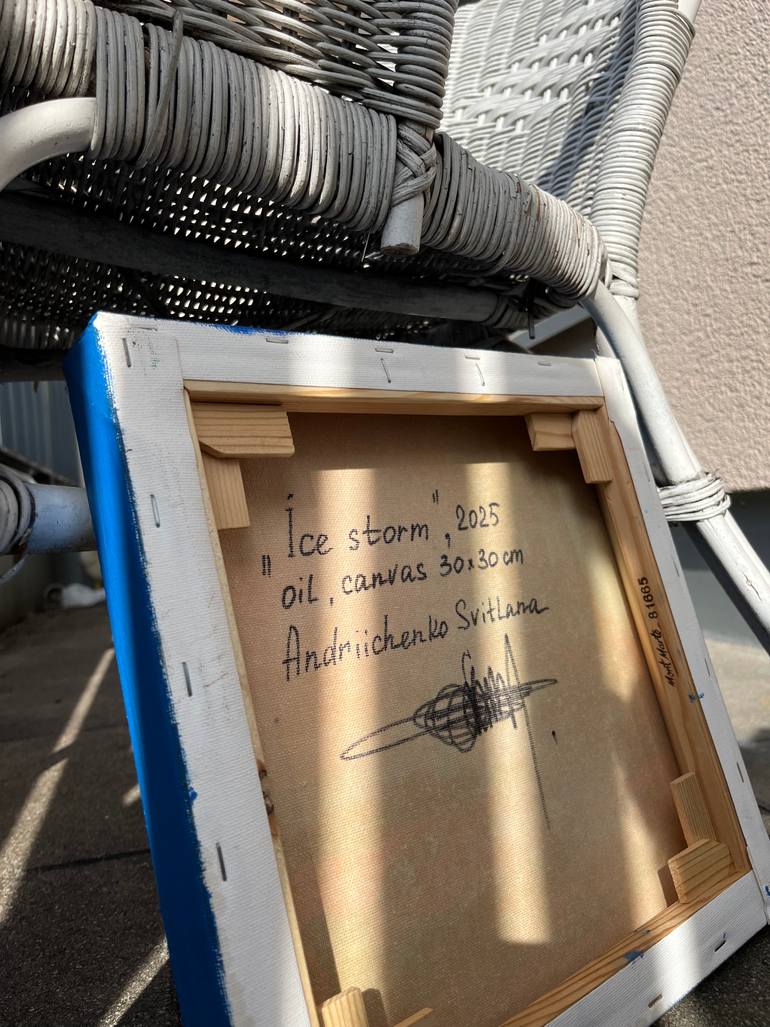 "İce storm", 2025
oil, canvas 30x30 cm
Andriichenko Svitlana
Mont Marte 81665